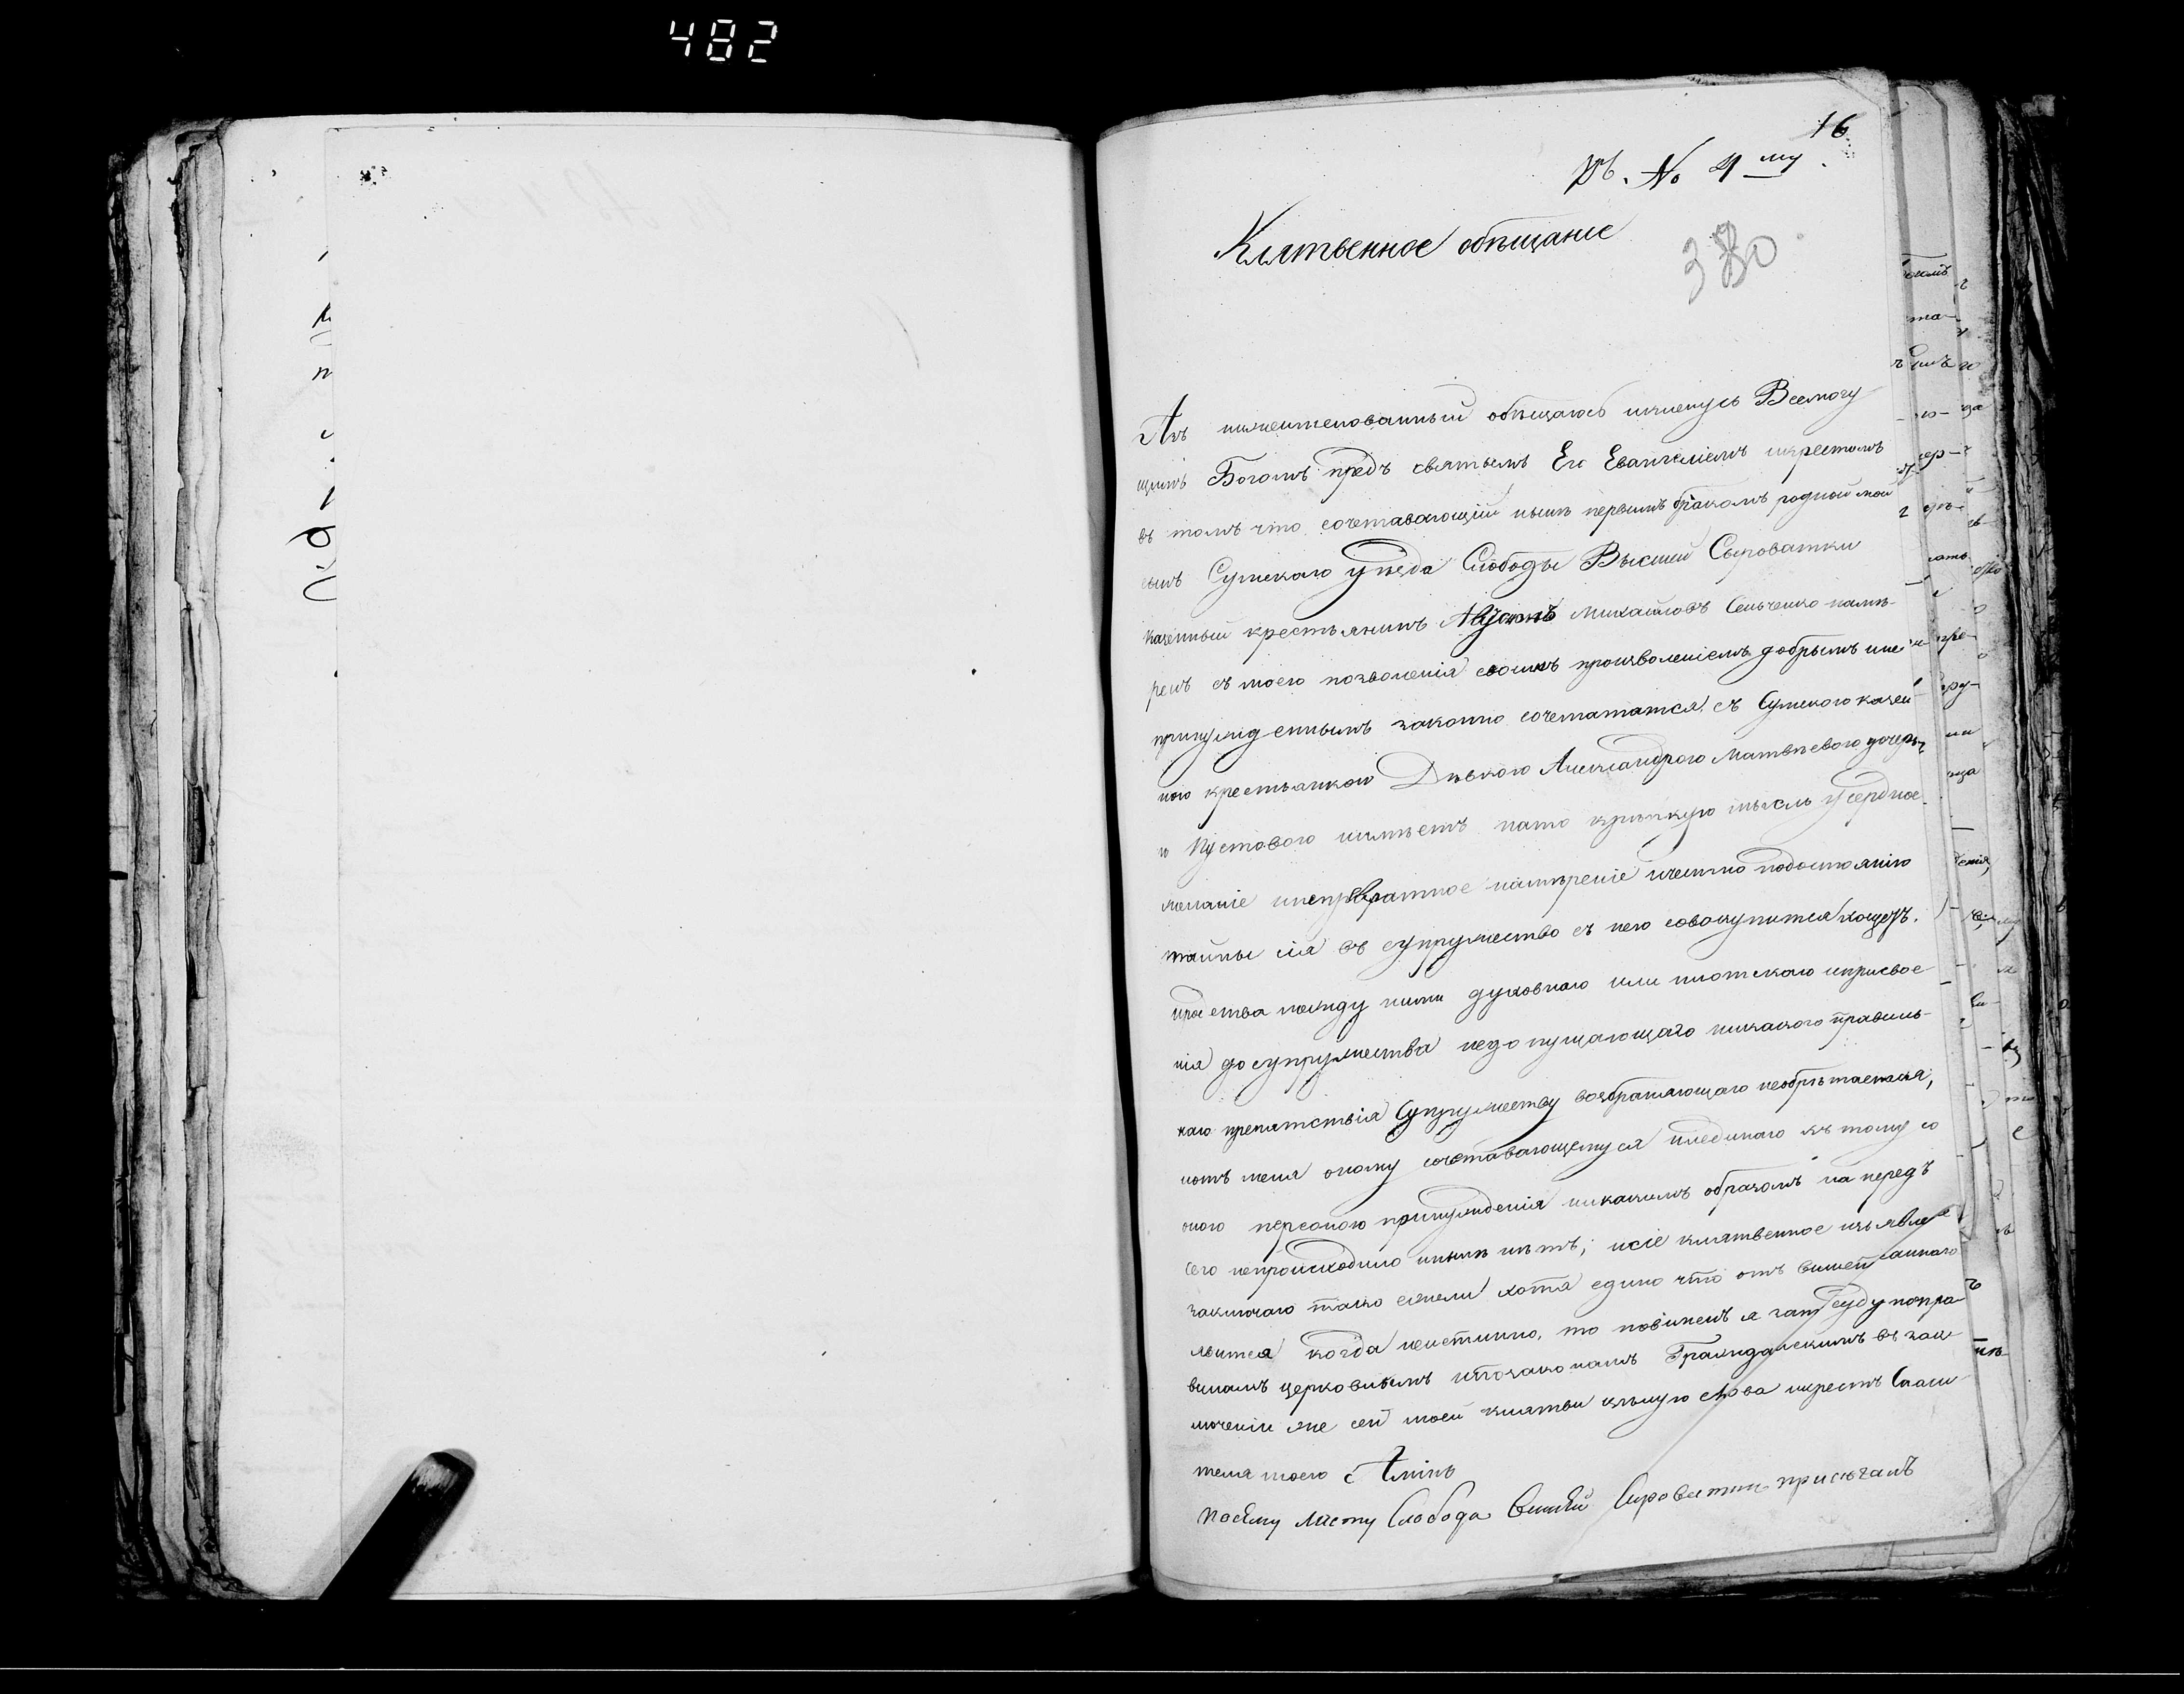 482
16
Къ № 4 му
Клятвенное обѣщаніе
380
Азъ нижеименованный обѣщаюсь иклянусь Всемогу
щимъ Богомъ предъ святымъ Его Евангеліемъ икрестомъ
въ томъ что сочетавающій нынѣ первымъ бракомъ родной мой
сынъ Сумскаго уѣзда Слободы Высшей Сыроватки
казенный крестьянинъ Михайловъ Сенченко намѣ-
ренъ съ моего позволенія своимъ произволеніемъ добрымъ ине
принужденнымъ законно сочетатися съ Сумскою казен
ною крестьянкою Дѣвкою Александрою Матвѣевою дочерью
Пустовою иимѣетъ нато крѣпкую мысль усердное
желаніе инепревратное намѣреніе ичестно подостоянію
тайны сія въ супружество съ нею совокупится хощетъ.
иродства между ними духовнаго или плотскаго иприсвое
нія до супружества недопущающаго никакого правиль-
наго препятствія Супружеству возбраняющаго необрѣтается,
иотъ меня оному сочетавающемуся инединаго къ тому со
оною персоною принужденія никакимъ образомъ на передъ
сего непроисходило инынѣ нѣтъ; исіе клятвенное изъявленіе
заключаю тако ежели хотя едино что отъ вышеписаннаго
явится когда неистинно, то повиненъ я зато суду попра
виламъ церковнымъ ипозаконамъ Гражданскимъ въ зак
люченіи же сей моей клятвы цѣлую слова икрестъ Спаси
теля моего Аминь
посему листу Слобода Вишей Сироватки присягалъ